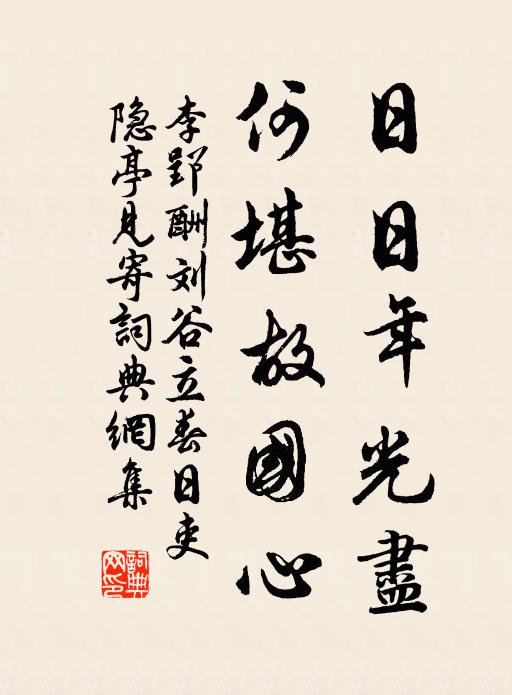 日日年光盡
何堪故國心
李郢酬刘谷立春日吏
隐亭見寄詞典網集
詞典網印